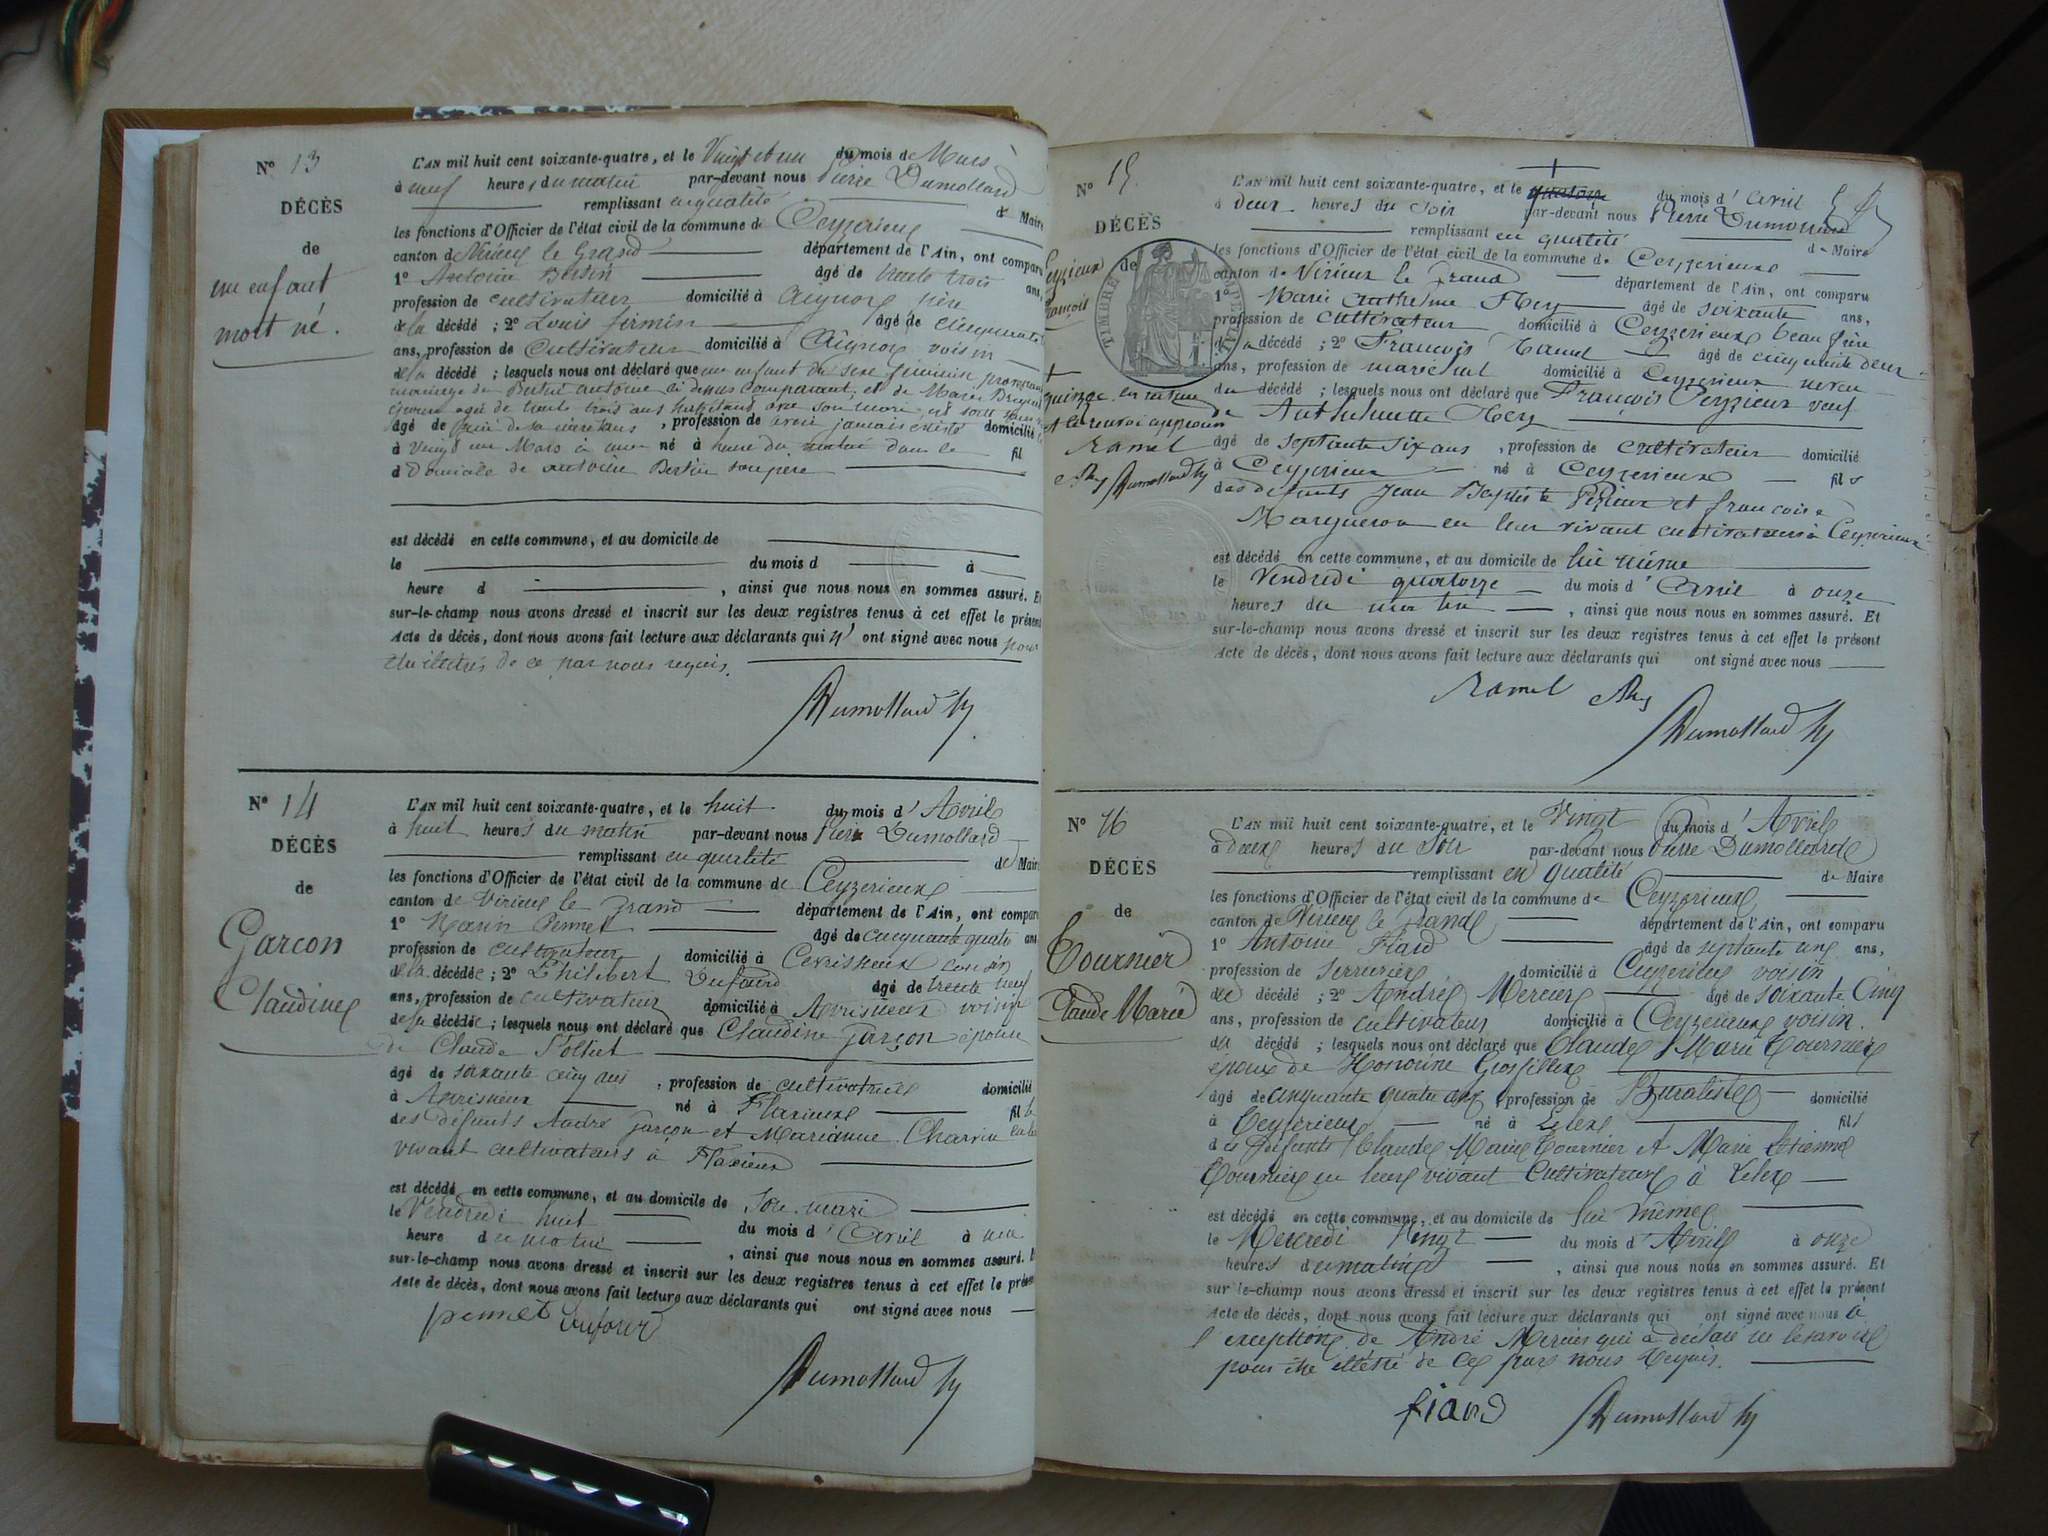 N° 13
DÉCÈS
de
un enfant
mort né.
L'AN mil huit cent soixante-quatre, et le Vingt et un du mois de Mars
à neuf heures du matin par-devant nous Pierre Dumollard
remplissant en qualité de Maire
les fonctions d'Officier de l'état civil de la commune de Ceyzerieux
canton de Virieux le Grand département de l'Ain, ont comparu
1° Antoine Bertin âgé de trente trois ans,
profession de cultivateur domicilié à Aignoz père
de la décédé ; 2° Louis firmin âgé de cinquante
ans, profession de Cultivateur domicilié à Aignoz voisin
de la décédé ; lesquels nous ont déclaré que un enfant du sexe féminin
mariage de Bertin antoine ci dessus comparant, et de Marie
âgée de trente trois ans
âgé de , profession de avoir jamais existé domicilié
à vingt un Mars à une né à heure du matin dans le fil
d domicile de antoine Bertin son père
est décédé en cette commune, et au domicile de
le du mois d à
heure d , ainsi que nous nous en sommes assuré. Et
sur-le-champ nous avons dressé et inscrit sur les deux registres tenus à cet effet le présent
Acte de décès, dont nous avons fait lecture aux déclarants qui n' ont signé avec nous pour
être illétrés de ce par nous requis.
Dumollard
N° 14
DÉCÈS
de
Garçon
Claudine
L'AN mil huit cent soixante-quatre, et le huit du mois d'Avril
à huit heures du matin par-devant nous Pierre Dumollard
remplissant en qualité de Maire
les fonctions d'Officier de l'état civil de la commune de Ceyzerieux
canton de Virieux le grand département de l'Ain, ont comparu
1° Marin Pennet âgé de cinquante quatre ans
profession de cultivateur domicilié à Avrissieux cousin
de la décédée ; 2° Philibert Dufourd âgé de trente neuf
ans, profession de cultivateur domicilié à Avrissieux voisin
de la décédée ; lesquels nous ont déclaré que Claudine garçon épouse
de Claude
âgé de soixante cinq ans , profession de cultivatrice domicilié
à Avrissieux né à Flaxieux fille
des défunts André garçon et Marianne Charvin en leur
vivant cultivateurs à Flaxieux
est décédé en cette commune, et au domicile de son mari
le Vendredi huit du mois d'Avril à une
heure du matin , ainsi que nous nous en sommes assuré. Et
sur-le-champ nous avons dressé et inscrit sur les deux registres tenus à cet effet le présent
Acte de décès, dont nous avons fait lecture aux déclarants qui ont signé avec nous
pennet Dufourd
Dumollard
N° 15.
DÉCÈS
de
Peyzieux
françois
TIMBRE IMPÉRIAL
quinze en rature
et le renvoi approuvé
Ramel
Rey Dumollard
L'AN mil huit cent soixante-quatre, et le quatorze du mois d'Avril
à deux heures du soir par-devant nous Pierre Dumollard
remplissant en qualité de Maire
les fonctions d'Officier de l'état civil de la commune de Ceyzerieux
canton de Virieux le grand département de l'Ain, ont comparu
1° Marie Anthelme Rey âgé de soixante ans,
profession de cultivateur domicilié à Ceyzerieux beau frère
du décédé ; 2° François Ramel âgé de cinquante deux
ans, profession de marechal domicilié à Ceyzerieux neveu
du décédé ; lesquels nous ont déclaré que François Peyzieux veuf
de Anthelmette Rey
âgé de septante six ans , profession de cultivateur domicilié
à Ceyzerieux né à Ceyzerieux fils
des défunts Jean Baptiste Peyzieux et francoise
Margueron en leur vivant cultivateurs à Ceyzerieux
est décédé en cette commune, et au domicile de lui même
le Vendredi quatorze du mois d'Avril à onze
heures du matin , ainsi que nous nous en sommes assuré. Et
sur-le-champ nous avons dressé et inscrit sur les deux registres tenus à cet effet le présent
Acte de décès, dont nous avons fait lecture aux déclarants qui ont signé avec nous
Ramel Rey
Dumollard
N° 16
DÉCÈS
de
Tournier
Claude Marie
L'AN mil huit cent soixante-quatre, et le Vingt du mois d'Avril
à deux heures du Soir par-devant nous Pierre Dumollard
remplissant en qualité de Maire
les fonctions d'Officier de l'état civil de la commune de Ceyzerieux
canton de Virieux le Grand département de l'Ain, ont comparu
1° Antoine Fiard âgé de septante un ans,
profession de serrurier domicilié à Ceyzerieux voisin
du décédé ; 2° André Mercier âgé de soixante Cinq
ans, profession de cultivateur domicilié à Ceyzerieux voisin
du décédé ; lesquels nous ont déclaré que Claude Marie Tournier
époux de Honorine Grosfillex
âgé de cinquante quatre ans, profession de Buraliste domicilié
à Ceyzerieux né à Lelex fils
des défunts Claude Marie Tournier et Marie Etienne
Tournier en leur vivant Cultivateurs à Lelex
est décédé en cette commune, et au domicile de lui même
le Mercredi Vingt du mois d'Avril à onze
heures du matin , ainsi que nous nous en sommes assuré. Et
sur-le-champ nous avons dressé et inscrit sur les deux registres tenus à cet effet le présent
Acte de décès, dont nous avons fait lecture aux déclarants qui ont signé avec nous à
l'exception de André Mercier qui a déclaré ne le savoir
pour être illétré de ce par nous requis.
fiard
Dumollard